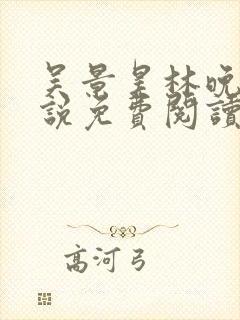 吴景星林晚
說免費閱讀
高河弓